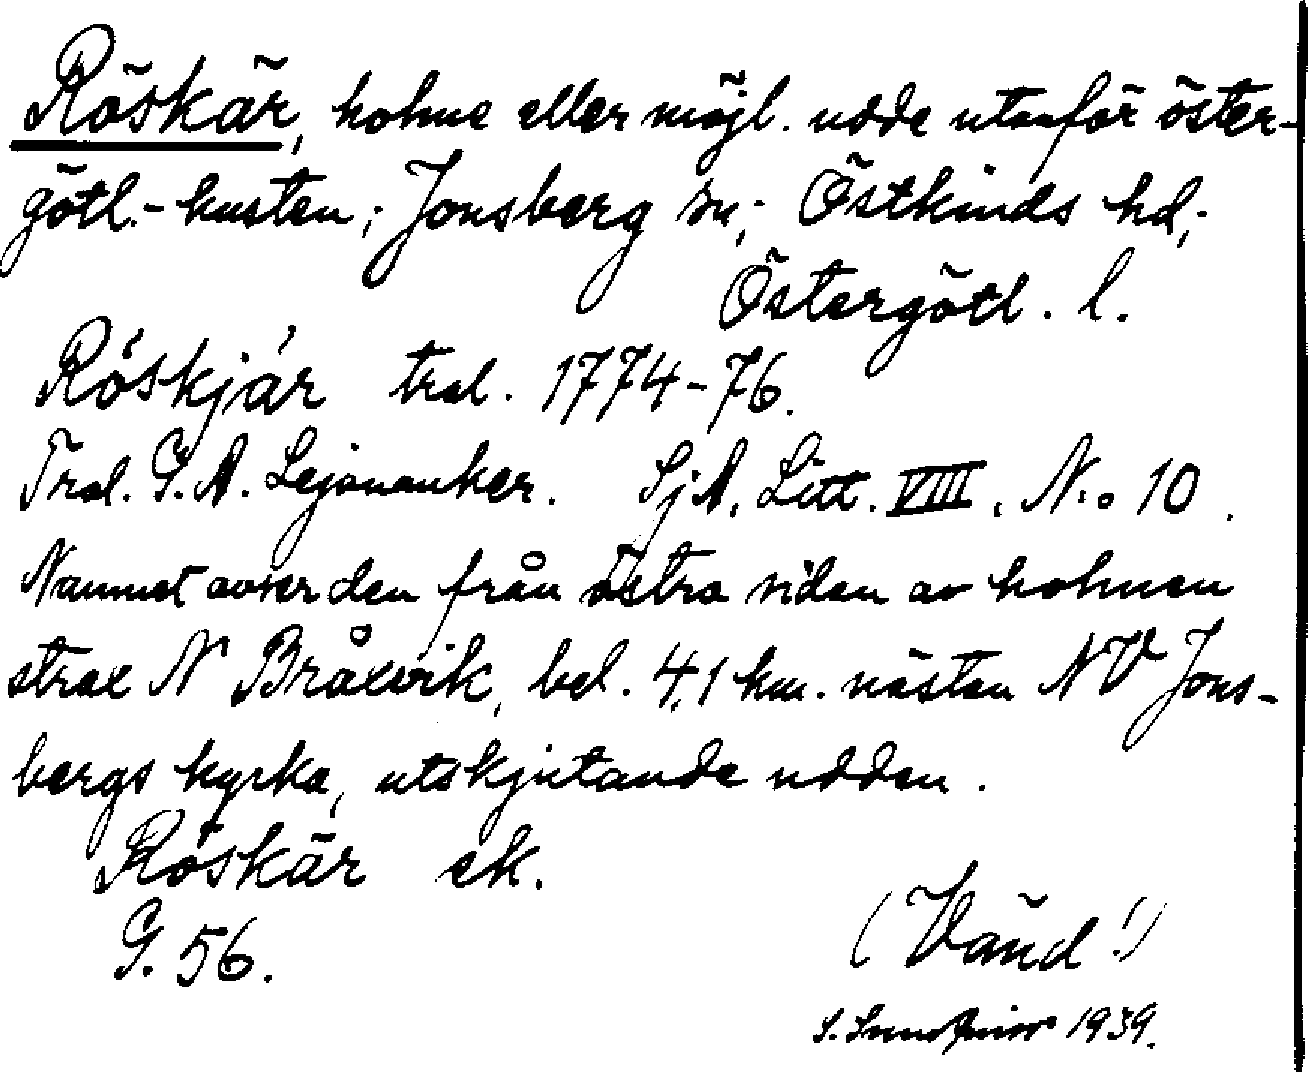 Röskär, holme eller möjl. udde utanför öster-
götl.-kusten; Jonsberg sn; Östkinds hd;
Östergötl. l.
Röskjär tral. 1774-76.
Tral. G. A. Lejonanker. SjA, Litt. VIII. N:o 10.
Namnet avser den från östra sidan av holmen
strax N Bråxvik, bel. 4,1 km. nästan NV Jons-
bergs kyrka, utskjutande udden.
Röskär ek.
G. 56.
(Vänd!)
S. 1939.